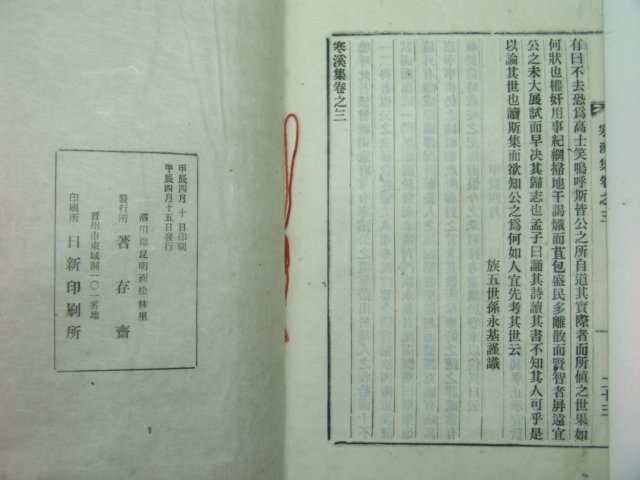 有曰不去恐爲高士笑嗚呼斯皆公之所自道其實際者而所値之世果如
何狀也權奸用事紀綱掃地干謁熾而苞苴盛民多離散而賢智者屛遠宜
公之未大展試而早決其歸志也孟子曰誦其詩讀其書不知其人可乎是
以論其世也讀斯集而欲知公之爲何如人宜先考其世云
族五世孫永基謹識
寒溪集卷之三
寒溪集卷之三
二十三
甲辰四月十日印刷
甲辰四月十五日發行
泗川郡昆明面松林里
發行所 著存齋
晋州市東城洞一〇一番地
印刷所 日新印刷所